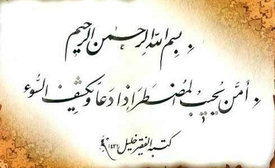 بسم الله الرحمن الرحيم
أمن يجيب المضطر إذا دعاه ويكشف السوء
كتبه الفقير خليل